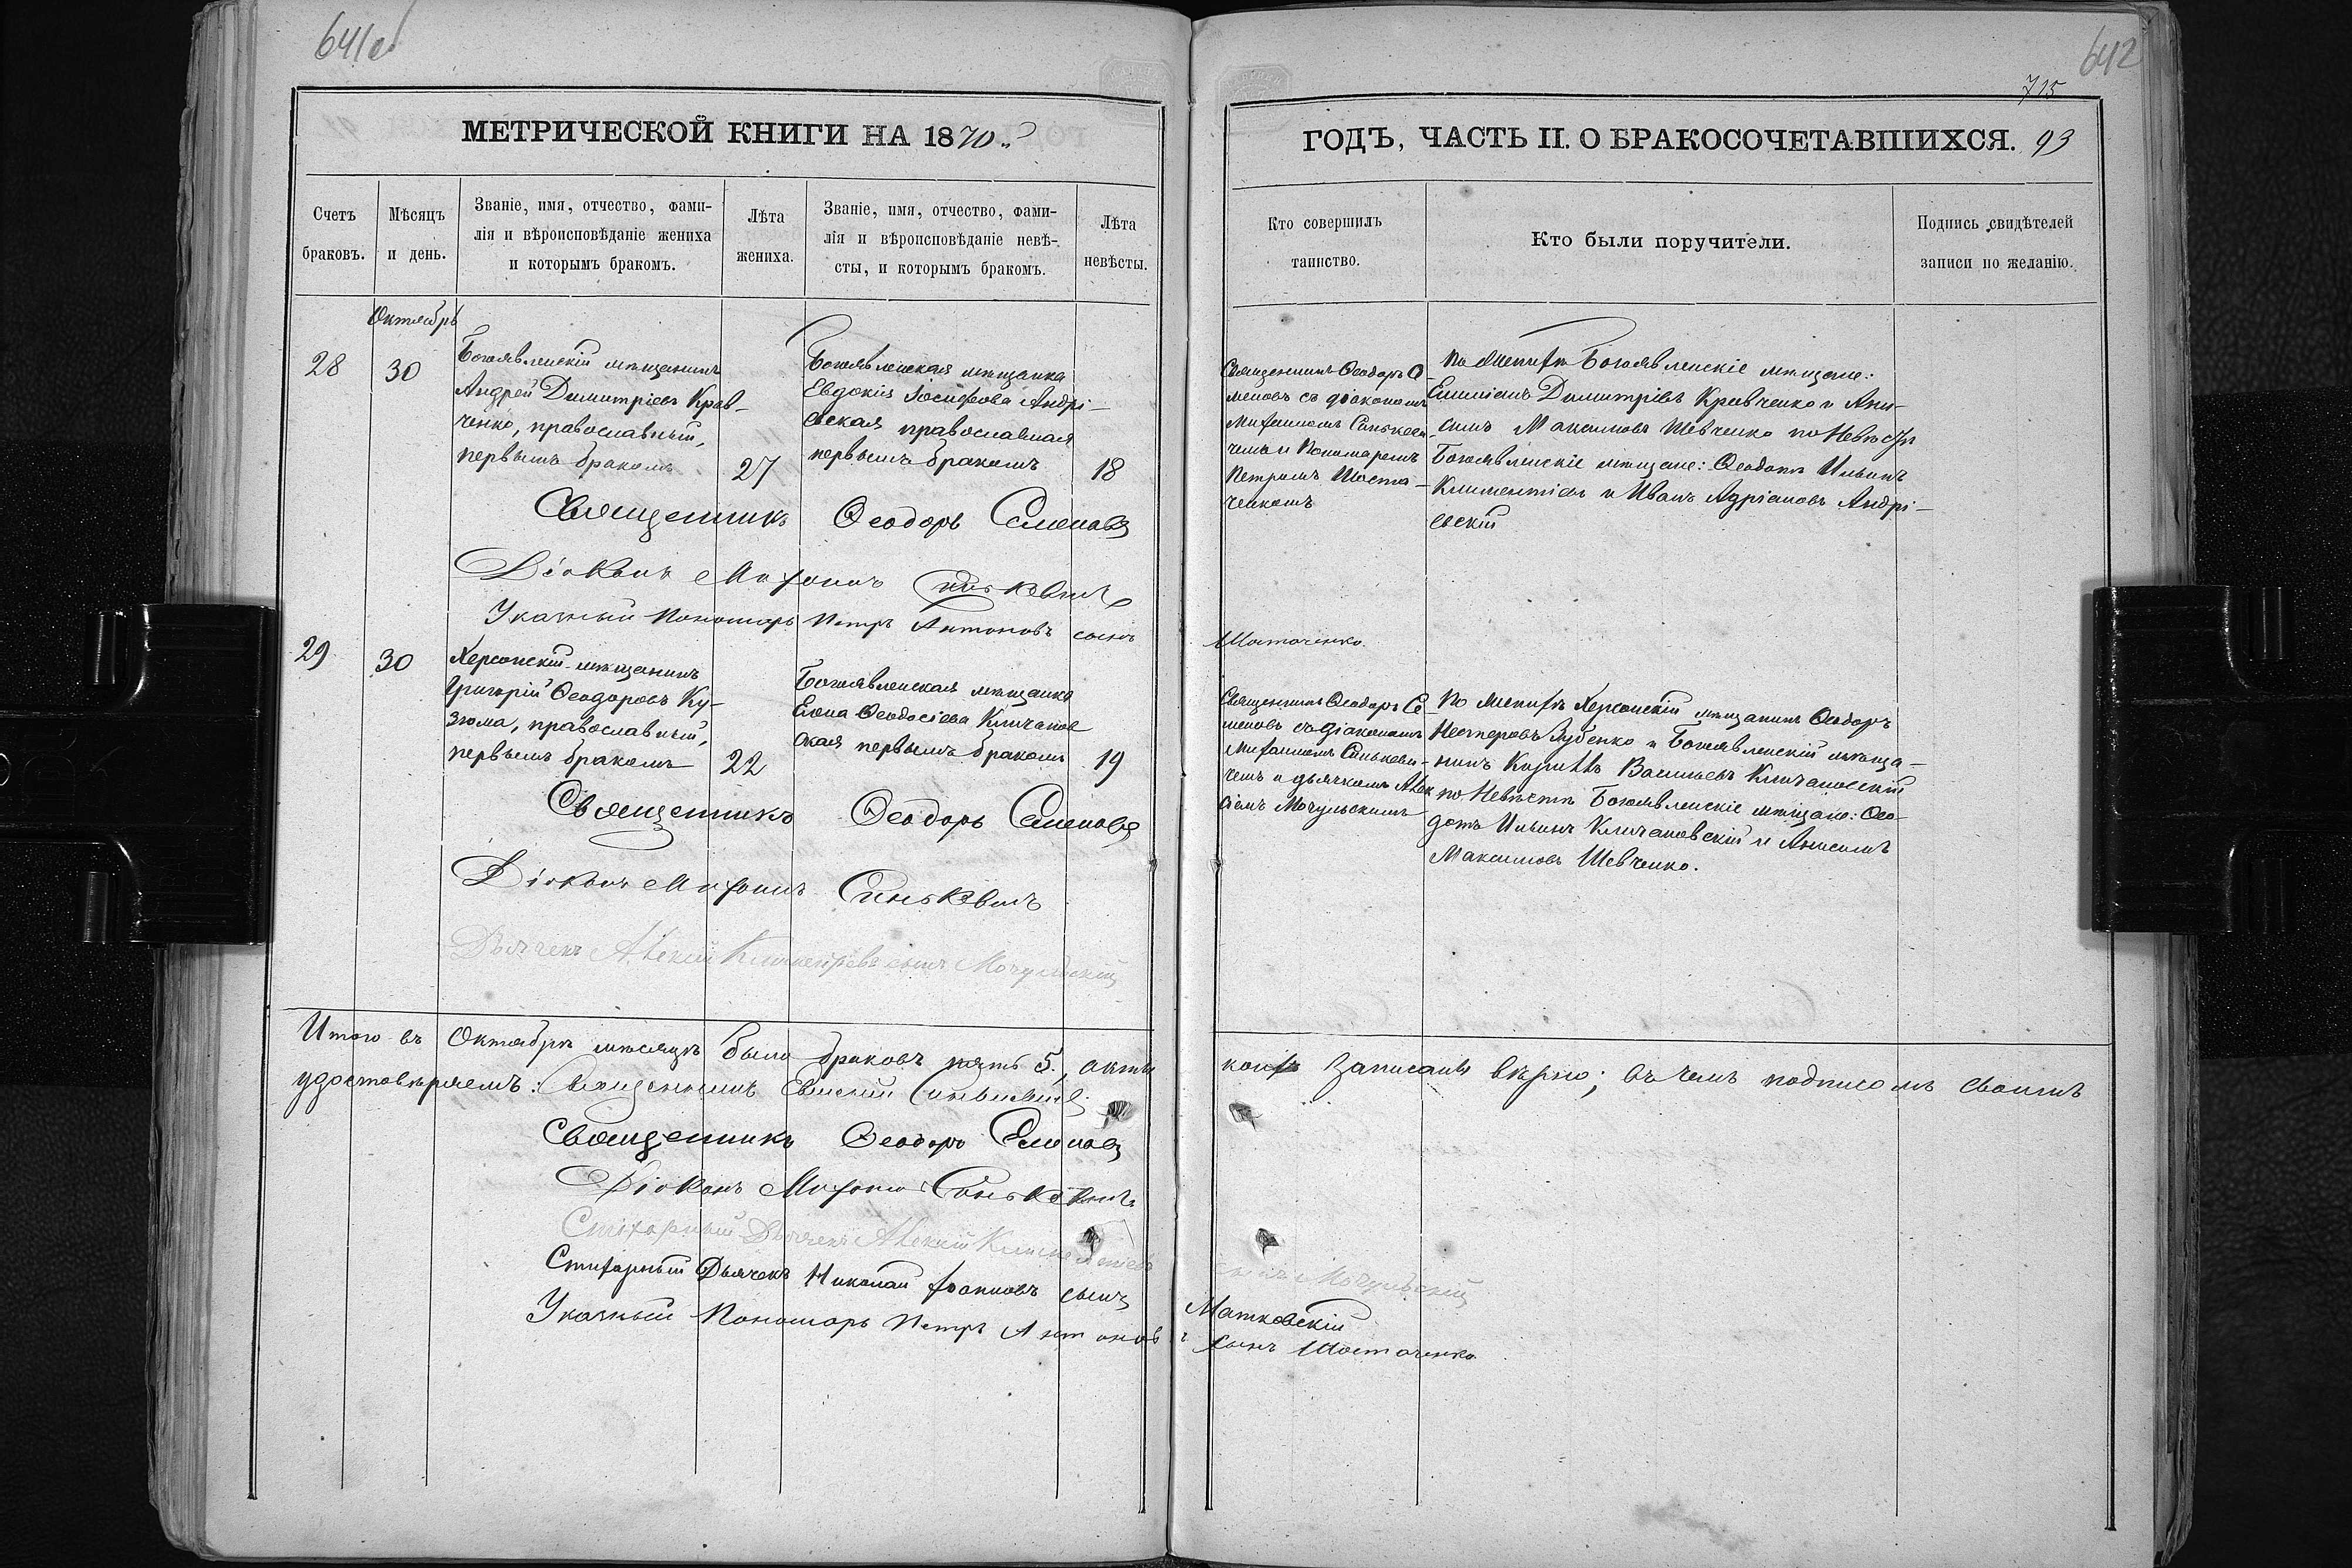 641об
642
715
МЕТРИЧЕСКОЙ КНИГИ НА 1870.
ГОДЪ, ЧАСТЬ II. О БРАКОСОЧЕТАВШИХСЯ. 93
Счетъ браковъ.
Мѣсяцъ и день.
Званіе, имя, отчество, фами-
лія и вѣроисповѣданіе жениха
и которымъ бракомъ.
Лѣта жениха.
Званіе, имя, отчество, фами-
лія и вѣроисповѣданіе невѣ-
сты, и которымъ бракомъ.
Лѣта невѣсты.
Кто совершилъ
таинство.
Кто были поручители.
Подпись свидѣтелей
записи по желанію.
Октябрь
28
30
Богоявленскій мѣщанинъ
Андрей Димитріевъ Крав-
ченко, православный,
первымъ бракомъ
27
Богоявленская мѣщанка
Евдокія Іосифова Андрі-
евская православная
первымъ бракомъ
18
Священникъ Ѳеодоръ Се
меновъ съ діакономъ
Миѳаниомъ Синькеви-
чемъ и Пономаремъ
Петромъ Шоста-
ченкомъ
По женихѣ Богоявленскіе мѣщане:
Емиліанъ Димитріевъ Кравченко и Ани-
симъ Максимовъ Шевченко по Невѣстѣ
Богоявленскіе мѣщане: Ѳеодотъ Ильинъ
Климентіевъ и Иванъ Адріановъ Андрі-
евскій
Священникъ Ѳеодоръ Семеновъ
Діаконъ Синькевичъ
Указный Пономарь Петръ Антоновъ сынъ
Шостаченко
29
30
Херсонскій мѣщанинъ
Григорій Ѳеодоровъ Ку-
зюма, православный,
первымъ бракомъ
22
Богоявленская мѣщанка
Ѳеодосіева Кличанов
ская первымъ бракомъ
19
Священникъ Ѳеодоръ Се
меновъ съ діакономъ
Синькеви-
чемъ и дьячкомъ Алек
сіемъ Мочульскимъ
По женихѣ Херсонскій мѣщанинъ Ѳеодоръ
Несторовъ Зубенко и Богоявленскій мѣща-
нинъ Кириллъ Васильевъ Кличановскій
по Невѣстѣ Богоявленскіе мѣщане: Ѳео-
дотъ Ильинъ Кличановскій и Анисимъ
Максимовъ Шевченко.
Священникъ Ѳеодоръ Семеновъ
Діаконъ Синькевичъ
Дьячекъ Алексій Климентіевъ сынъ Мочульскій
Итого въ Октябрѣ мѣсяцѣ было браковъ пять 5., акты
коихъ записаны вѣрно; въ чемъ подписомъ своимъ
удостовѣряемъ: Священникъ Евгеній Синькевичъ
Священникъ Ѳеодоръ Семеновъ
Діаконъ Синькевичъ
Стихарный Дьячекъ Алексій Климентіевъ
сынъ Мочульскій
Стихарный Дьячекъ Николай Іоанновъ сынъ
Матковскій
Указный Пономарь Петръ Антоновъ
сынъ Шостаченко